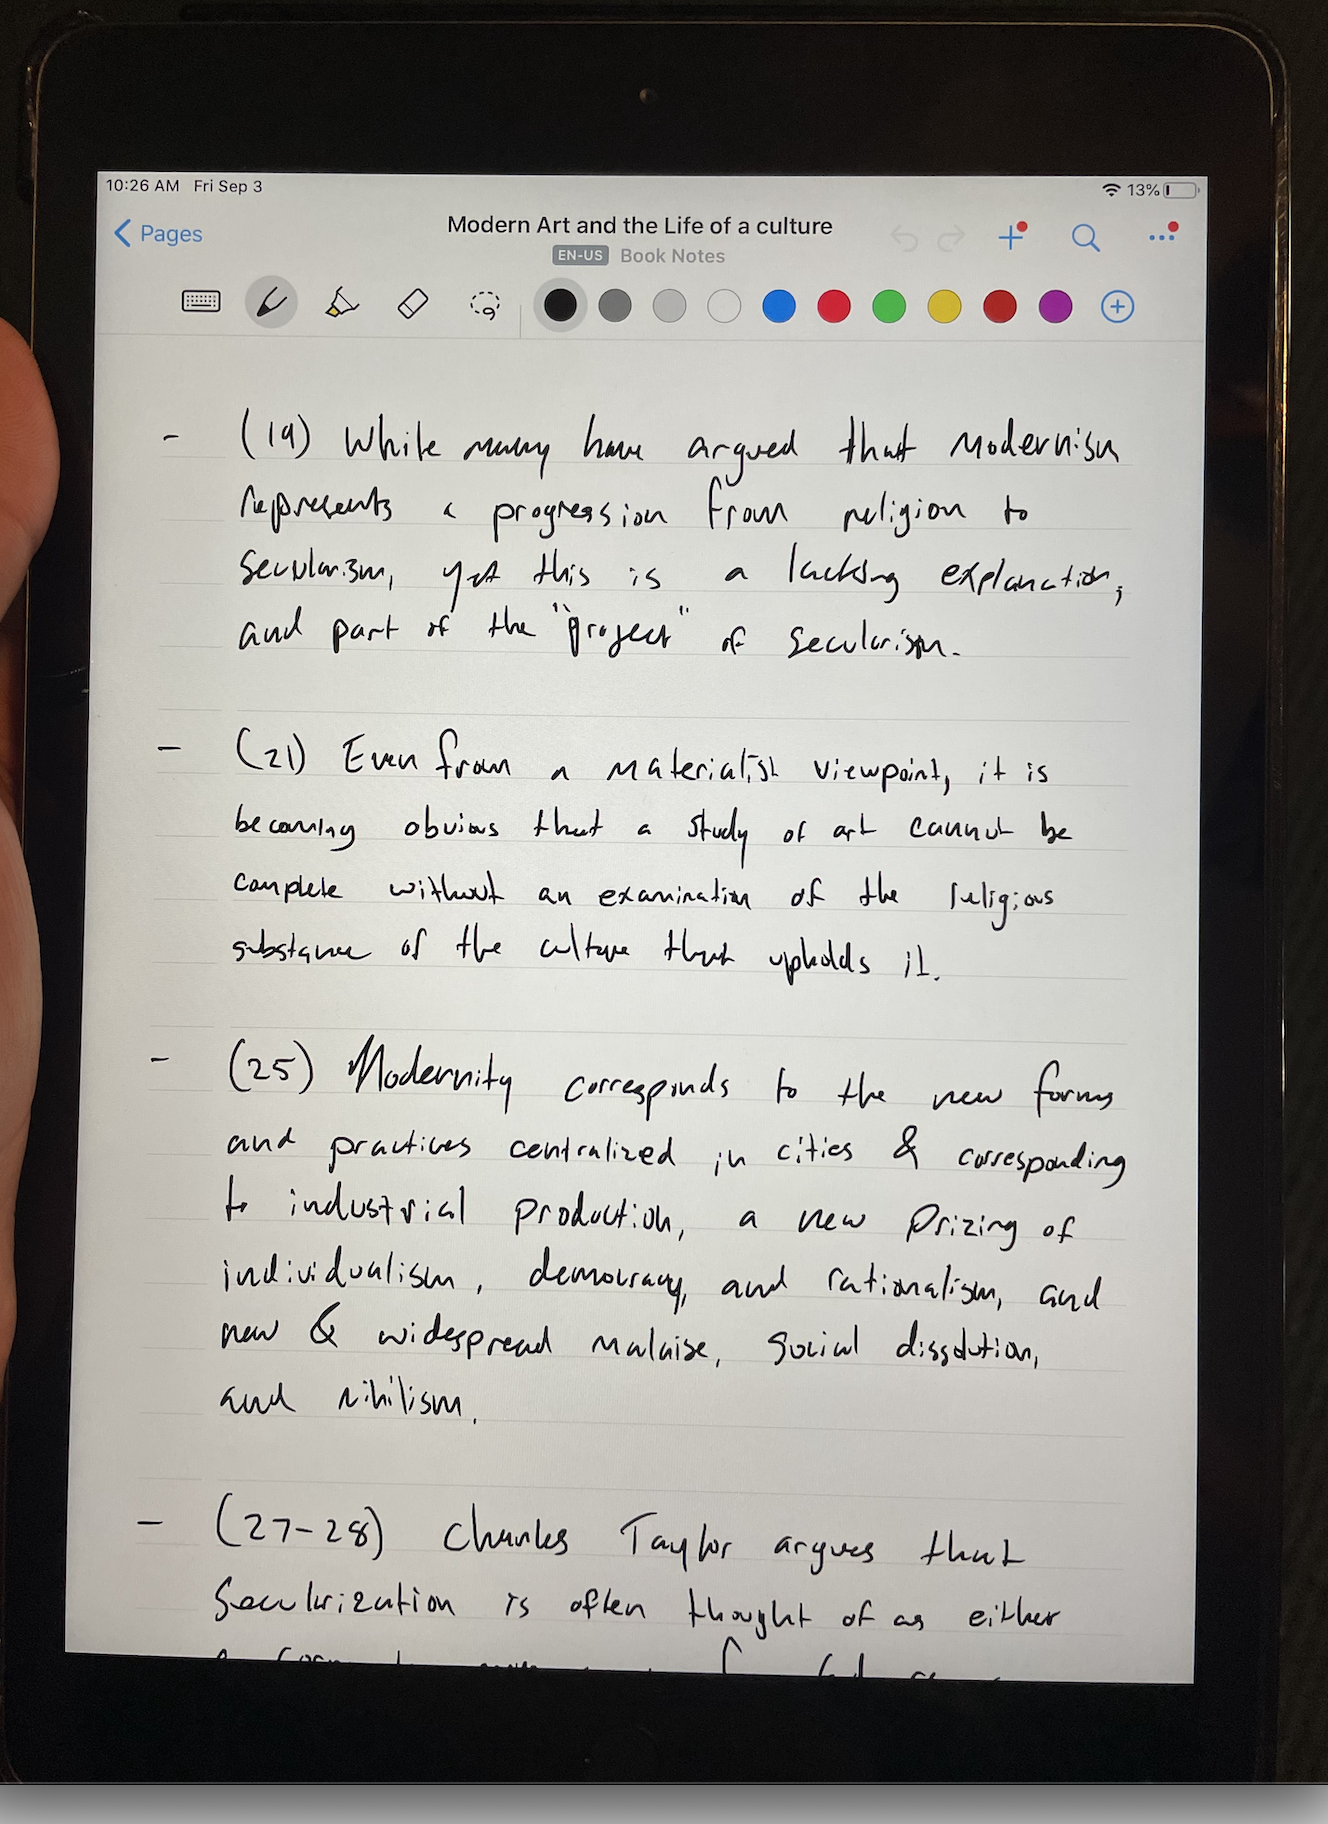 10:26 AM Fri Sep 3 13%
Pages
Modern Art and the Life of a culture
EN-US Book Notes
- (19) While many have argued that Modernism
represents a progression from religion to
secularism, yet this is a lacking explanation,
and part of the "project" of secularism.
- (21) Even from a materialist viewpoint, it is
becoming obvious that a study of art cannot be
complete without an examination of the religious
substance of the culture that upholds it.
- (25) Modernity corresponds to the new forms
and practices centralized in cities & corresponding
to industrial production, a new prizing of
individualism, democracy, and rationalism, and
new & widespread malaise, social dissolution,
and nihilism.
- (27-28) Charles Taylor argues that
Secularization is often thought of as either